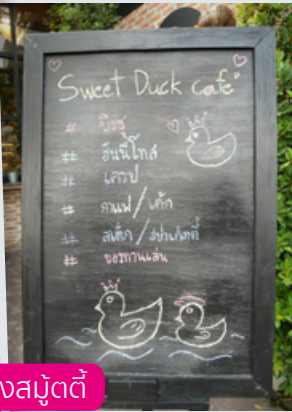 Sweet Duck cafe
# บิงซู
# ฮันนี่โทส
# เครป
# กาแฟ/เค้ก
# สเต็ก/สปาเก็ตตี้
# ของทานเล่น
งสมู้ตตี้